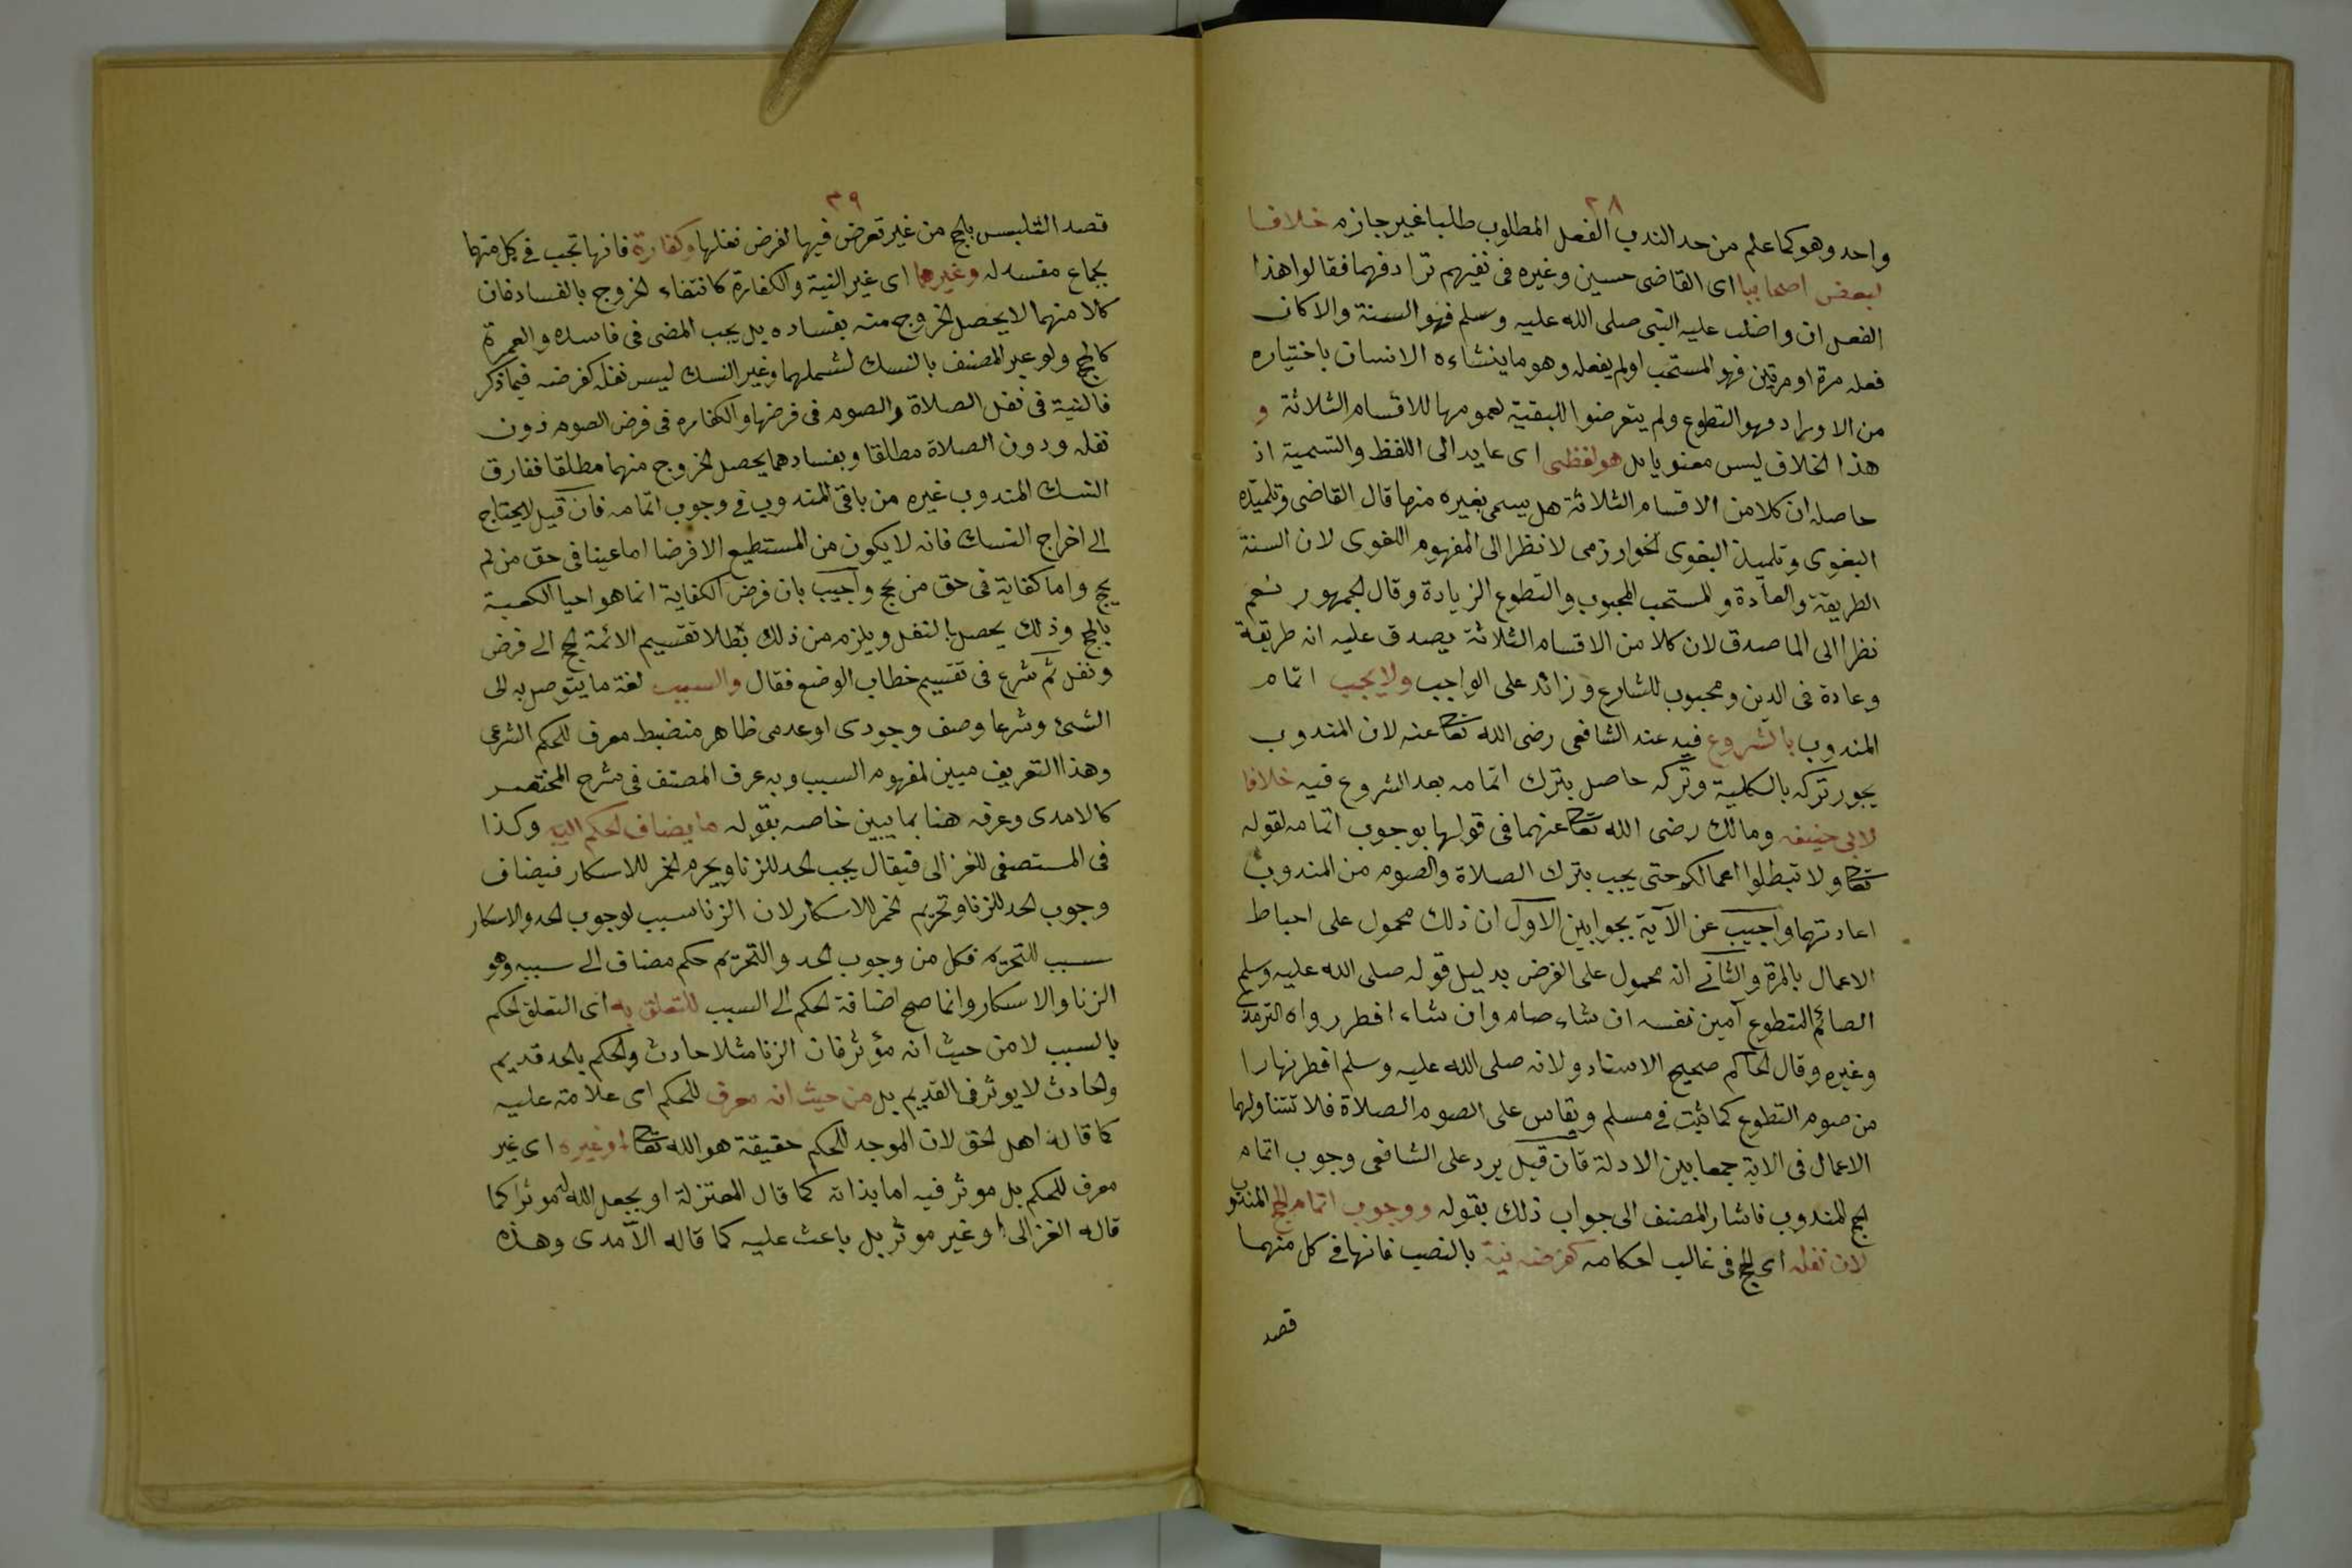 ٣٨
واحد وهو كما علم من حد الندب الفعل المطلوب طلبا غير جازم خلافا
لبعض اصحابنا اى القاضى حسين وغيره فى نفيهم ترادفهما فقالوا هذا
الفعل ان واضب عليه النبى صلى الله عليه وسلم فهو السنة والا كان
فعله مرة او مرتين فهو المستحب او لم يفعله وهو ما ينشاءه الانسان باختياره
من الاوراد فهو التطوع ولم يتعرضوا للبقية لعمومها للاقسام الثلاثة و
هذا الخلاف ليس معنويا بل هو لفظى اى عايد الى اللفظ والتسمية اذ
حاصله ان كلا من الاقسام الثلاثة هل يسمى بغيره منها قال القاضى وتلميذه
البغوى وتلميذ البغوى الخوارزمى لا نظرا الى المفهوم اللغوى لان السنة
الطريقة والعادة والمستحب المحبوب والتطوع الزيادة وقال الجمهور نعم
نظرا الى الما صدق لان كلا من الاقسام الثلاثة يصدق عليه انه طريقة
وعادة فى الدين ومحبوب للشارع وزائد على الواجب ولا يجب اتمام
المندوب بالشروع فيه عند الشافعى رضى الله تعا عنه لان المندوب
يجوز تركه بالكلية وتركه حاصل بترك اتمامه بعد الشروع فيه خلافا
لابى حنيفه ومالك رضى الله تعا عنهما فى قولها بوجوب اتمامه لقوله
تعا ولا تبطلوا اعمالكم حتى يجب بترك الصلاة والصوم من المندوب
اعادتهما واجيب عن الآية بجوابين الاول ان ذلك محمول على احباط
الاعمال بالمرة والثانى انه محمول على الفرض بدليل قوله صلى الله عليه وسلم
الصائم المتطوع آمين نفسه ان شاء صام وان شاء افطر رواه الترمذى
وغيره وقال الحاكم صحيح الاسناد ولانه صلى الله عليه وسلم افطر نهارا
من صوم التطوع كما ثبت فى مسلم ويقاس على الصوم الصلاة فلا تتناولهما
الاعمال فى الاية جمعا بين الادلة فان قيل يرد على الشافعى وجوب اتمام
الحج المندوب فاشار المصنف الى جواب ذلك بقوله ووجوب اتمام الحج المندوب
لان نفله اى الحج فى غالب احكامه كفرضه نية بالنصب فانها فى كل منهما
قصد
٣٩
قصد التلبس بالحج من غير تعرض فيها لفرض نفلها وكفارة فانها تجب فى كل منهما
بجماع مفسد له وغيرهما اى غير النية والكفارة كانتفاء الخروج بالفساد فان
كلا منهما لا يحصل الخروج منه بفساده بل يجب المضى فى فاسده والعمرة
كالحج ولو عبر المصنف بالنسك لشملهما وغير النسك ليس نفله كفرضه فيما ذكر
فالنية فى نفل الصلاة والصوم فى فرضها والكفاره فى فرض الصوم دون
نفله ودون الصلاة مطلقا وبفسادهما يحصل الخروج منهما مطلقا ففارق
النسك المندوب غيره من باقى المندوب فى وجوب اتمامه فان قيل لا يحتاج
الى اخراج النسك فانه لا يكون من المستطيع الا فرضا اما عينا فى حق من لم
يحج واما كفاية فى حق من حج واجيب بان فرض الكفاية انما هو احيا الكعبة
بالحج وذلك يحصل بالنفل ويلزم من ذلك بطلا تقسيم الائمة الحج الى فرض
ونفل ثم شرع فى تقسيم خطاب الوضع فقال والسبب لغة ما يتوصل به الى
الشئ وشرعا وصف وجودى او عدمى ظاهر منضبط معرف للحكم الشرعى
وهذا التعريف مبين لمفهوم السبب وبه عرف المصنف فى شرح المختصر
كالامدى وعرفه هنا بما يبين خاصه بقوله ما يضاف الحكم اليه وكذا
فى المستصفى للغزالى فيقال يجب الحد للزنا ويحرم الخمر للاسكار فيضاف
وجوب الحد للزنا وتحريم الخمر للاسكار لان الزنا سبب لوجوب الحد والاسكار
سبب للتحريم فكل من وجوب الحد والتحريم حكم مضاف الى سببه وهو
الزنا والاسكار وانما صح اضافة الحكم الى السبب للتعلق به اى التعلق الحكم
بالسبب لا من حيث انه مؤثر فان الزنا مثلا حادث والحكم بالحد قديم
والحادث لا يوثر فى القديم بل من حيث انه معرف للحكم اى علامة عليه
كما قاله اهل الحق لان الموجد للحكم حقيقة هو الله تعا او غيره اى غير
معرف للحكم بل موثر فيه اما بذاته كما قال المعتزلة او بجعل الله له موثرا كما
قاله الغزالى او غير موثر بل باعث عليه كما قاله الآمدى وهذه